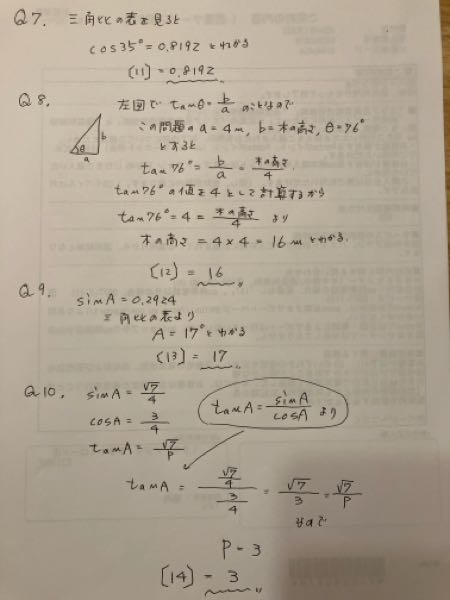 Q7. 三角比の表を見ると
cos35°=0.8192 とわかる
[11] = 0.8192
Q8. 左図で tanθ=b/a のことなので
この問題のa=4m, b=木の高さ, θ=76°
とすると
θ a b
tan76°= b/a = 木の高さ/4
tan76°の値を4として計算するから
tan76°=4= 木の高さ/4 より
木の高さ = 4×4 = 16m とわかる.
[12] = 16
Q9. sinA=0.2924
三角比の表より
A=17°とわかる
[13] = 17
Q10. sinA= √7/4
tanA= sinA/cosA より
cosA= 3/4
tanA= √7/P
tanA = (√7/4)/(3/4) = √7/3 = √7/P
なので
P=3
[14] = 3